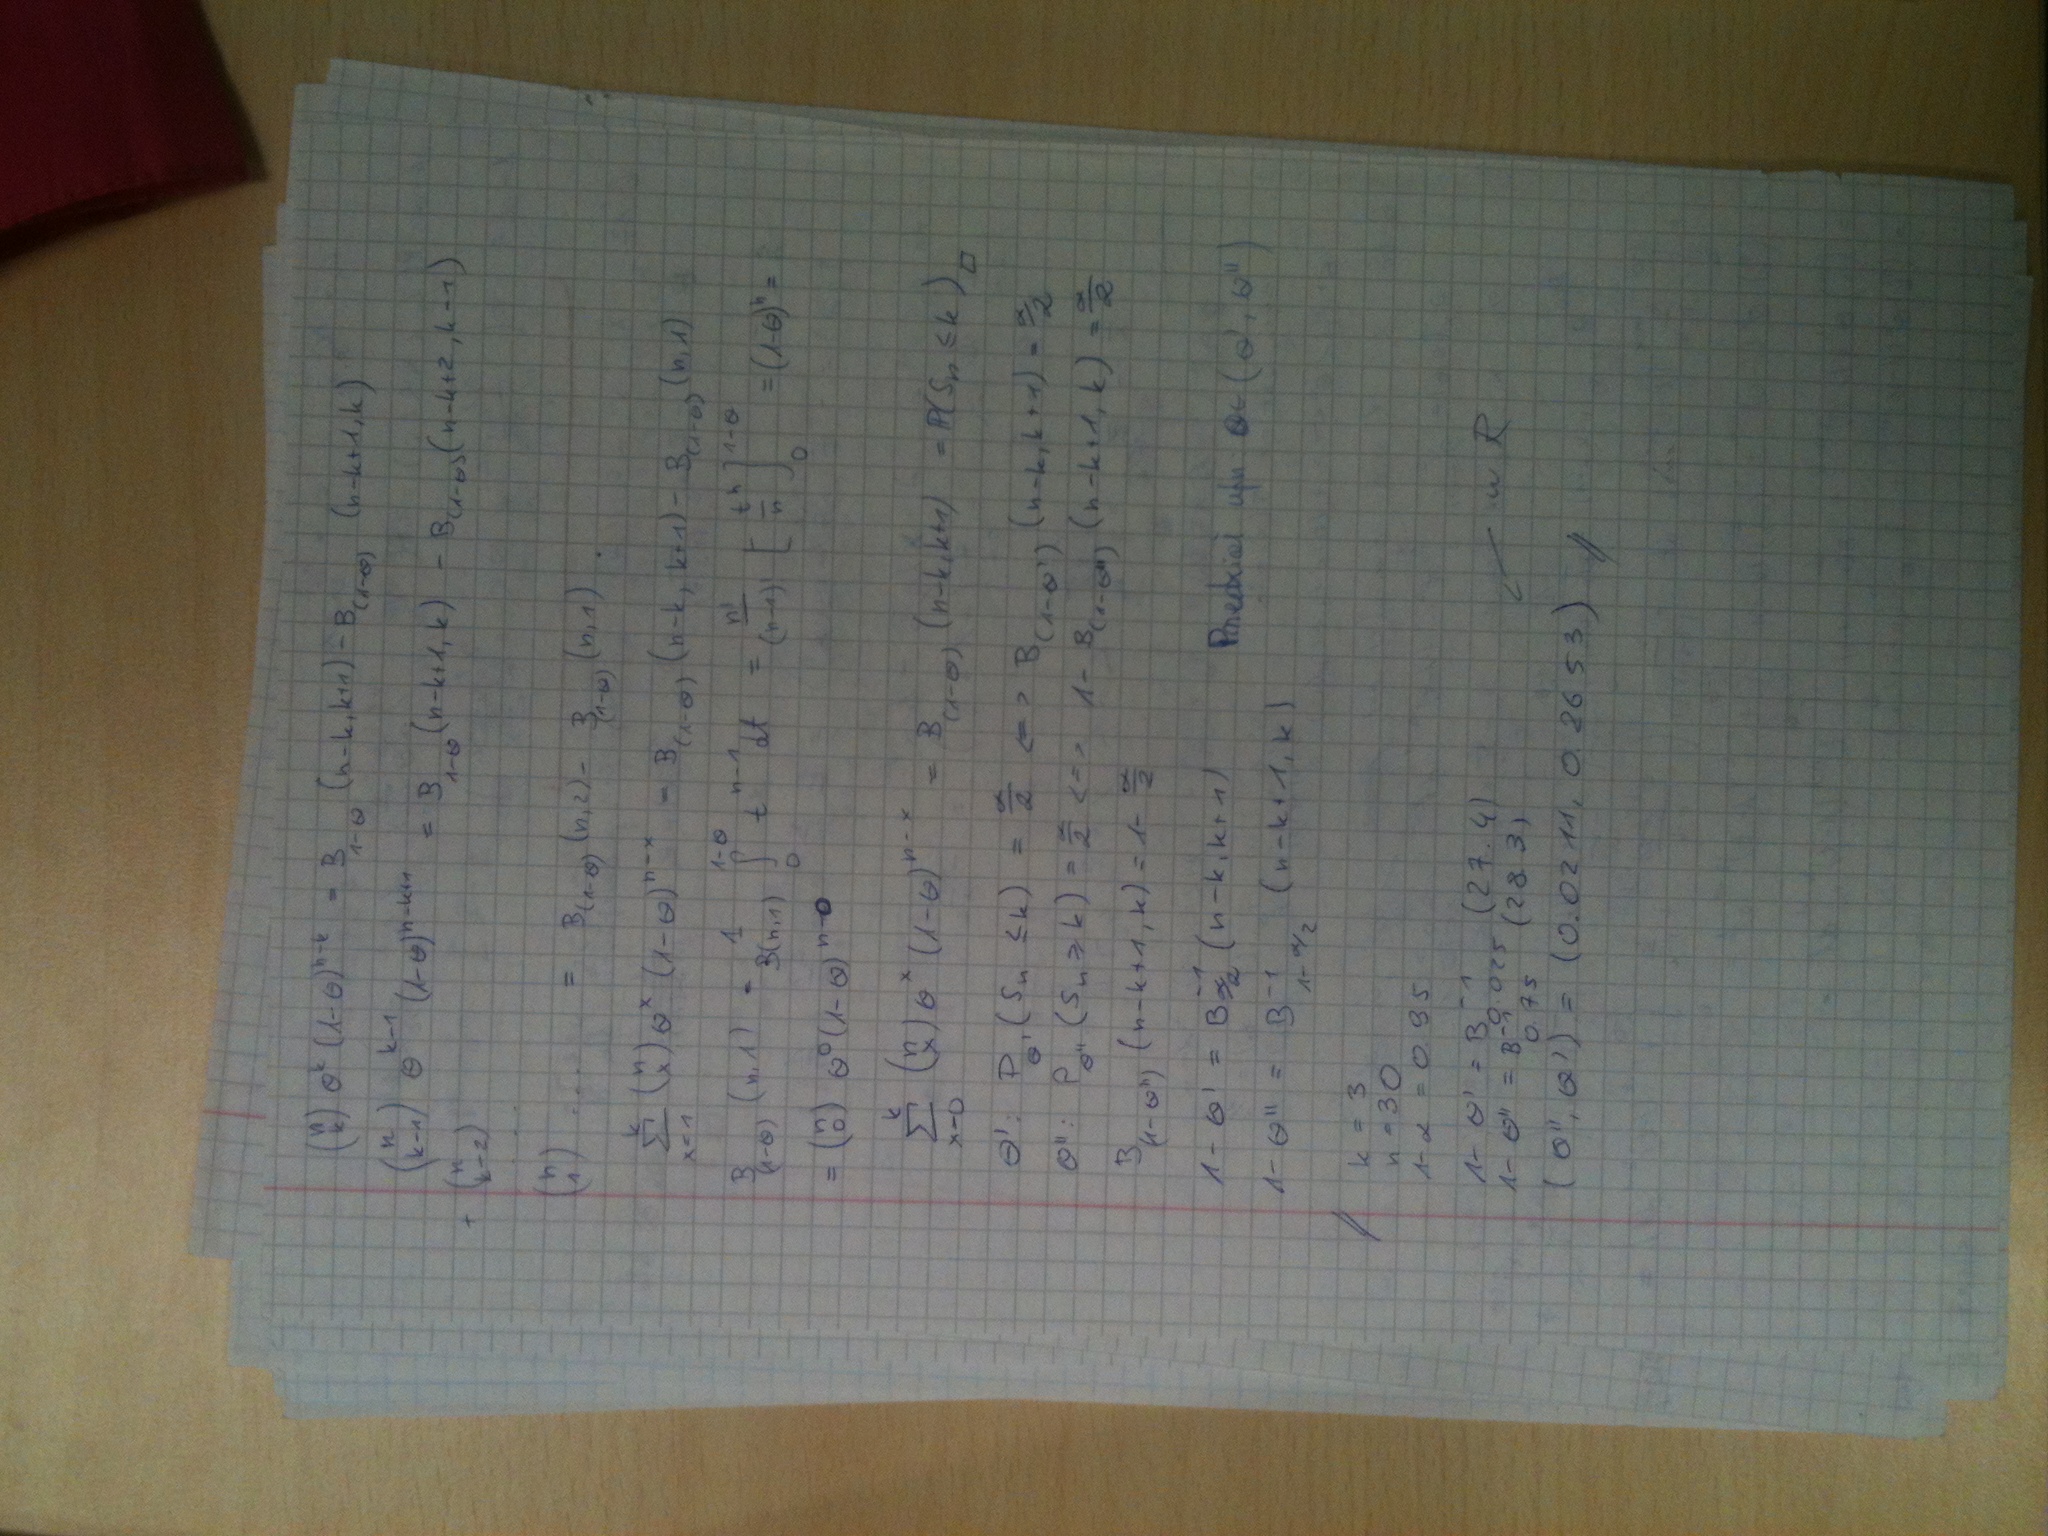 (n k) θ^k (1-θ)^{n-k} = B_{1-θ} (n-k, k+1) - B_{(1-θ)} (n-k+1, k)
(n k-1) θ^{k-1} (1-θ)^{n-k+1} = B_{1-θ} (n-k+1, k) - B_{(1-θ)} (n-k+2, k-1)
+ (n k-2)
. . . .
(n 1) .... = B_{(1-θ)} (n, 2) - B_{(1-θ)} (n, 1) .
∑_{x=1}^{k} (n x) θ^x (1-θ)^{n-x} = B_{(1-θ)} (n-k, k+1) - B_{(1-θ)} (n, 1)
B_{(1-θ)} (n, 1) = 1/B(n,1) ∫_0^{1-θ} t^{n-1} dt = n!/(n-1)! [t^n/n]_0^{1-θ} = (1-θ)^n =
= (n 0) θ^0 (1-θ)^{n-0}
∑_{x=0}^{k} (n x) θ^x (1-θ)^{n-x} = B_{(1-θ)} (n-k, k+1) = P(S_n ≤ k) □
θ': P_{θ'} (S_n ≤ k) = α/2 <=> B_{(1-θ')} (n-k, k+1) = α/2
θ'': P_{θ''} (S_n ≥ k) = α/2 <=> 1 - B_{(1-θ'')} (n-k+1, k) = α/2
B_{(1-θ'')} (n-k+1, k) = 1 - α/2
1-θ' = B^{-1}_{α/2} (n-k, k+1) θ∈ (θ', θ'')
1-θ'' = B^{-1}_{1-α/2} (n-k+1, k)
// k = 3
n = 30
1-α = 0.95
1-θ' = B^{-1}_{0.025} (27.4)
1-θ'' = B^{-1}_{0.75} (28 3) ← w R
(θ'', θ') = (0.0211, 0.2653) //